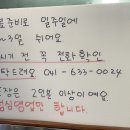 료준비로 일주일에
~3일 쉬어요
시기 전 꼭 전화확인
탁드려요 041-633-0024
장은 2인분 이상이에요
심영업만 합니다.